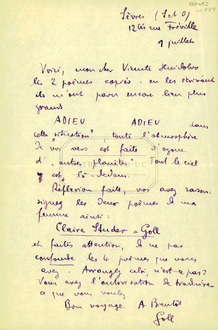 Sèvres (Set O)
12 bis rue Fréville
1 juillet
Voici, mon cher Vicente Huidobro
les 2 poèmes copiés. en les écrivant
ils m'ont paru encore bien plus
grands
ADIEU ADIEU dans
cette situation toute l'atmosphère
de vos vers est faite d'ozone
d'autres planètes. Tout le ciel
y est, là dedans.
Réflexion faite, vous avez raison:
signez les deux poèmes de ma
femme ainsi:
Claire Studer-Goll
et faites attention, de ne pas
confondre les 4 poèmes que vous
avez. Arrangez cela, n'est-ce pas?
Vous avez l'autorisation de traduire
ce que vous voulez
Bon voyage. A Bientôt
Goll